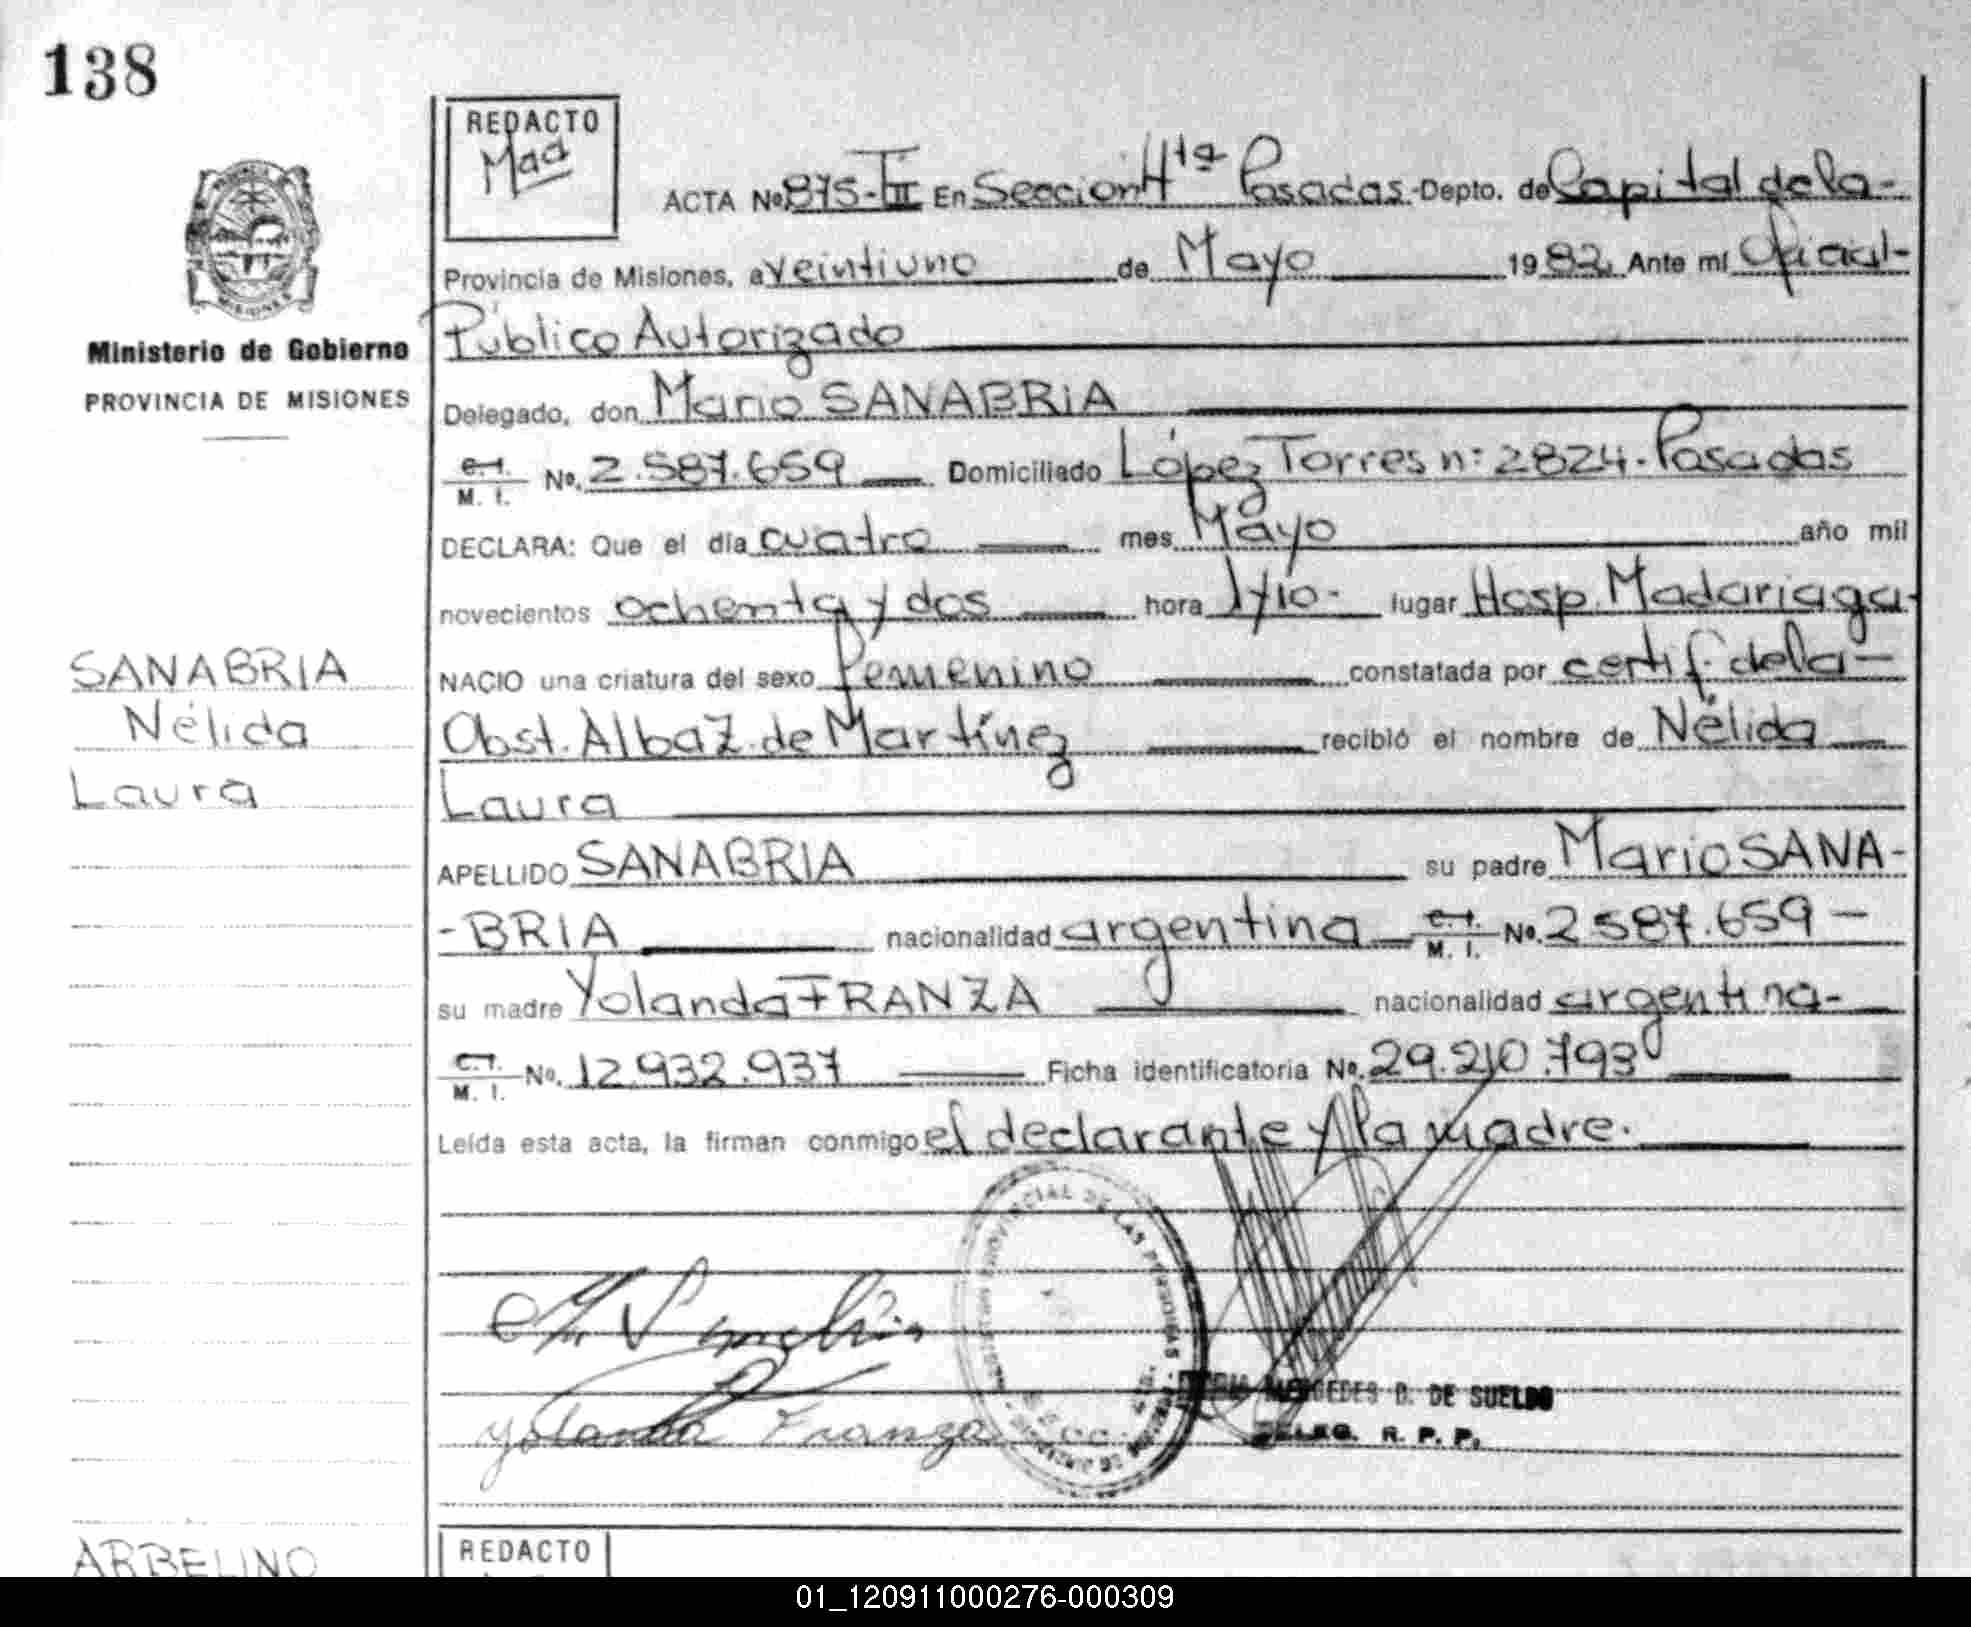 138
REDACTO
Maa
ACTA No. 875-III En Sección 4ta Posadas.-Depto. de Capital de la-
Provincia de Misiones, a veintiuno de Mayo 1982. Ante mí Oficial-
Público Autorizado
Ministerio de Gobierno
PROVINCIA DE MISIONES
Delegado, don Mario SANABRIA
C.I. M. I. No. 2.587.659 Domiciliado López Torres n: 2824. Posadas
DECLARA: Que el día cuatro mes Mayo año mil
novecientos ochenta y dos hora 1y10- lugar Hosp. Madariaga-
NACIO una criatura del sexo femenino constatada por certif. de la-
Obst. Alba Z. de Martínez recibió el nombre de Nélida
Laura
SANABRIA
Nélida
Laura
APELLIDO SANABRIA su padre Mario SANA-
-BRIA nacionalidad argentina C.I. M. I. No. 2.587.659-
su madre Yolanda FRANZA nacionalidad argentina-
C.I. M. I. No. 12.932.937 Ficha identificatoria No. 29.210.793
Leída esta acta, la firman conmigo el declarante y la madre.
REGISTRO PROVINCIAL DE LAS PERSONAS
Yolanda Franza
MERCEDES D. DE SUELDO
DELEG. R. P. P.
ARBELINO
REDACTO
01_120911000276-000309